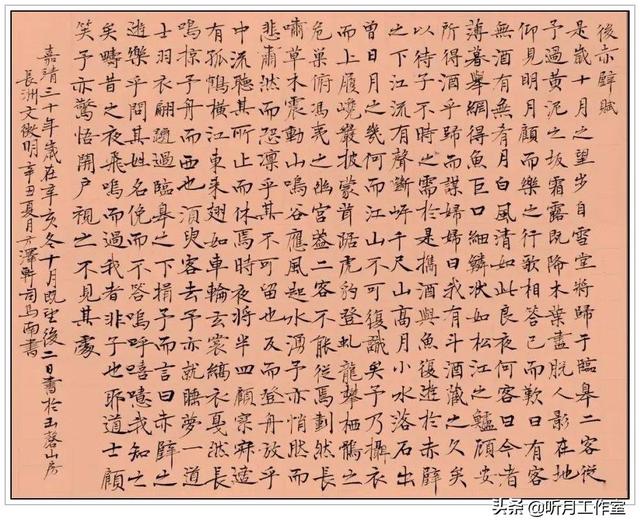 後赤壁賦
是歲十月之望步自雪堂將歸于臨皋二客從
予過黃泥之坂霜露既降木葉盡脫人影在地
仰見明月顧而樂之行歌相答已而歎曰有客
無酒有無肴月白風清如此良夜何客曰今者
薄暮舉網得魚巨口細鱗狀如松江之鱸顧安
所得酒乎歸而謀婦婦曰我有斗酒藏之久矣
以待子不時之需於是攜酒與魚復遊於赤壁
之下江流有聲斷岸千尺山高月小水落石出
曾日月之幾何而江山不可復識矣予乃攝衣
而上履巉巖披蒙茸踞虎豹登虬龍攀栖鶻之
危巢俯馮夷之幽宮蓋二客不能從焉劃然長
嘯草木震動山鳴谷應風起水湧予亦悄然而
悲肅然而恐凜乎其不可留也反而登舟放乎
中流聽其所止而休焉時夜將半四顧寂寥適
有孤鶴橫江東來翅如車輪玄裳縞衣戛然長
鳴掠予舟而西也須臾客去予亦就睡夢一道
士羽衣翩躚過臨皋之下揖予而言曰赤壁之
遊樂乎問其姓名俛而不答嗚呼噫嘻我知之
矣疇昔之夜飛鳴而過我者非子也耶道士顧
笑予亦驚悟開戶視之不見其處
嘉靖三十年歲在辛亥冬十月既望後二日書於玉磬山房
長洲文徵明 辛丑夏月 澤軒司馬南書
头条 @听月工作室